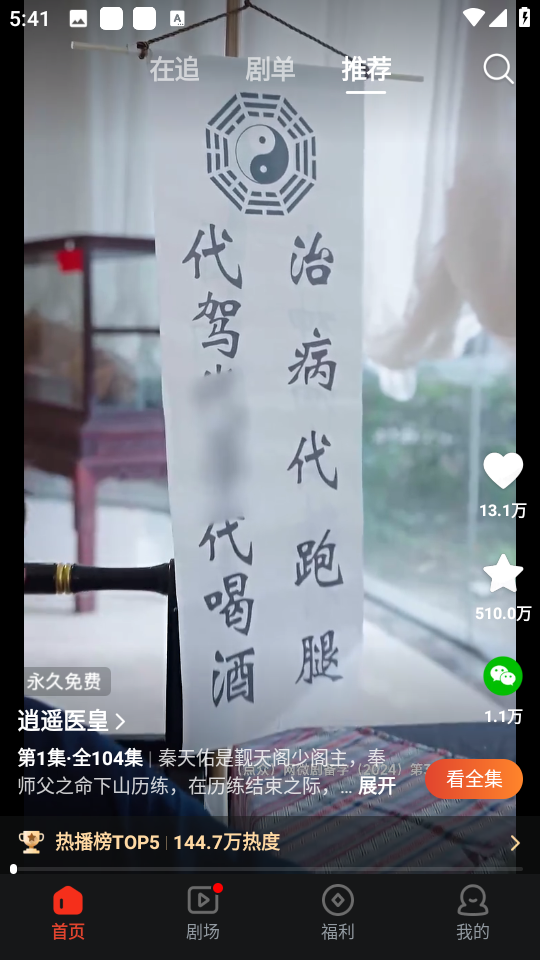 5:41
在追 剧单 推荐
治病代跑腿
代驾
代喝酒
13.1万
510.0万
1.1万
永久免费
逍遥医皇
第1集·全104集 | 秦天佑是觐天阁少阁主，奉
师父之命下山历练，在历练结束之际，... 展开
看全集
热播榜TOP5 | 144.7万热度
首页 剧场 福利 我的